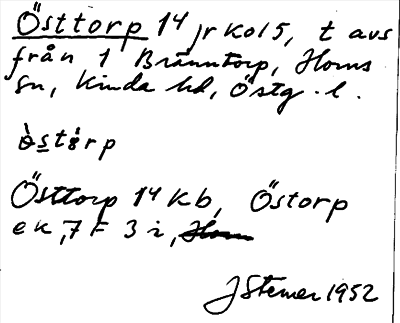 Östtorp 14 jr kol 5, t avs
från 1 Bränntorp, Horns
sn, Kinda hd, Östg. l.
ö̀stórp
Östtorp 14 Kb, Östorp
ek, 7 F 3 i, Horn
J Stemer 1952